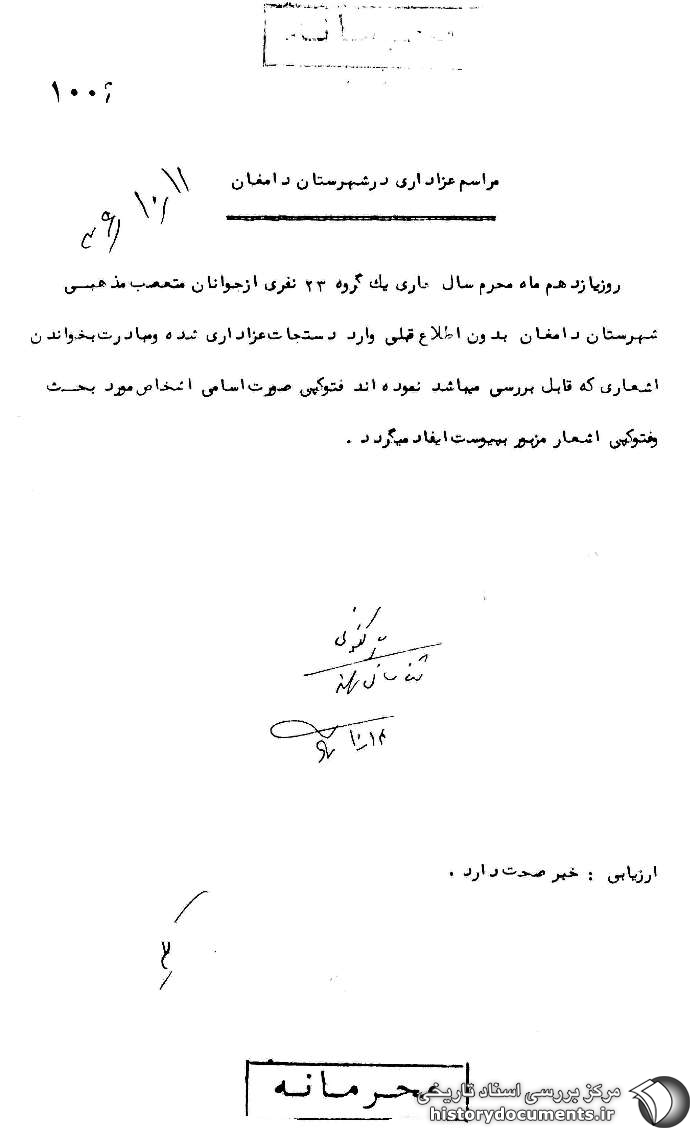 محرمانه
۱۰۰۶
مراسم عزاداری در شهرستان دامغان
۱۱
۱۰
روز یازدهم ماه محرم سال جاری یك گروه ۲۳ نفری از جوانان متعصب مذهبی
شهرستان دامغان بدون اطلاع قبلی وارد دستجات عزاداری شده و مبادرت بخواندن
اشعاری که قابل بررسی میباشد نموده اند فتوکپی صورت اسامی اشخاص مورد بحث
و فتوکپی اشعار مزبور بپیوست ایفاد میگردد .
۱۰
ارزیابی : خبر صحت دارد .
محرمانه
مرکز بررسی اسناد تاریخی
historydocuments.ir